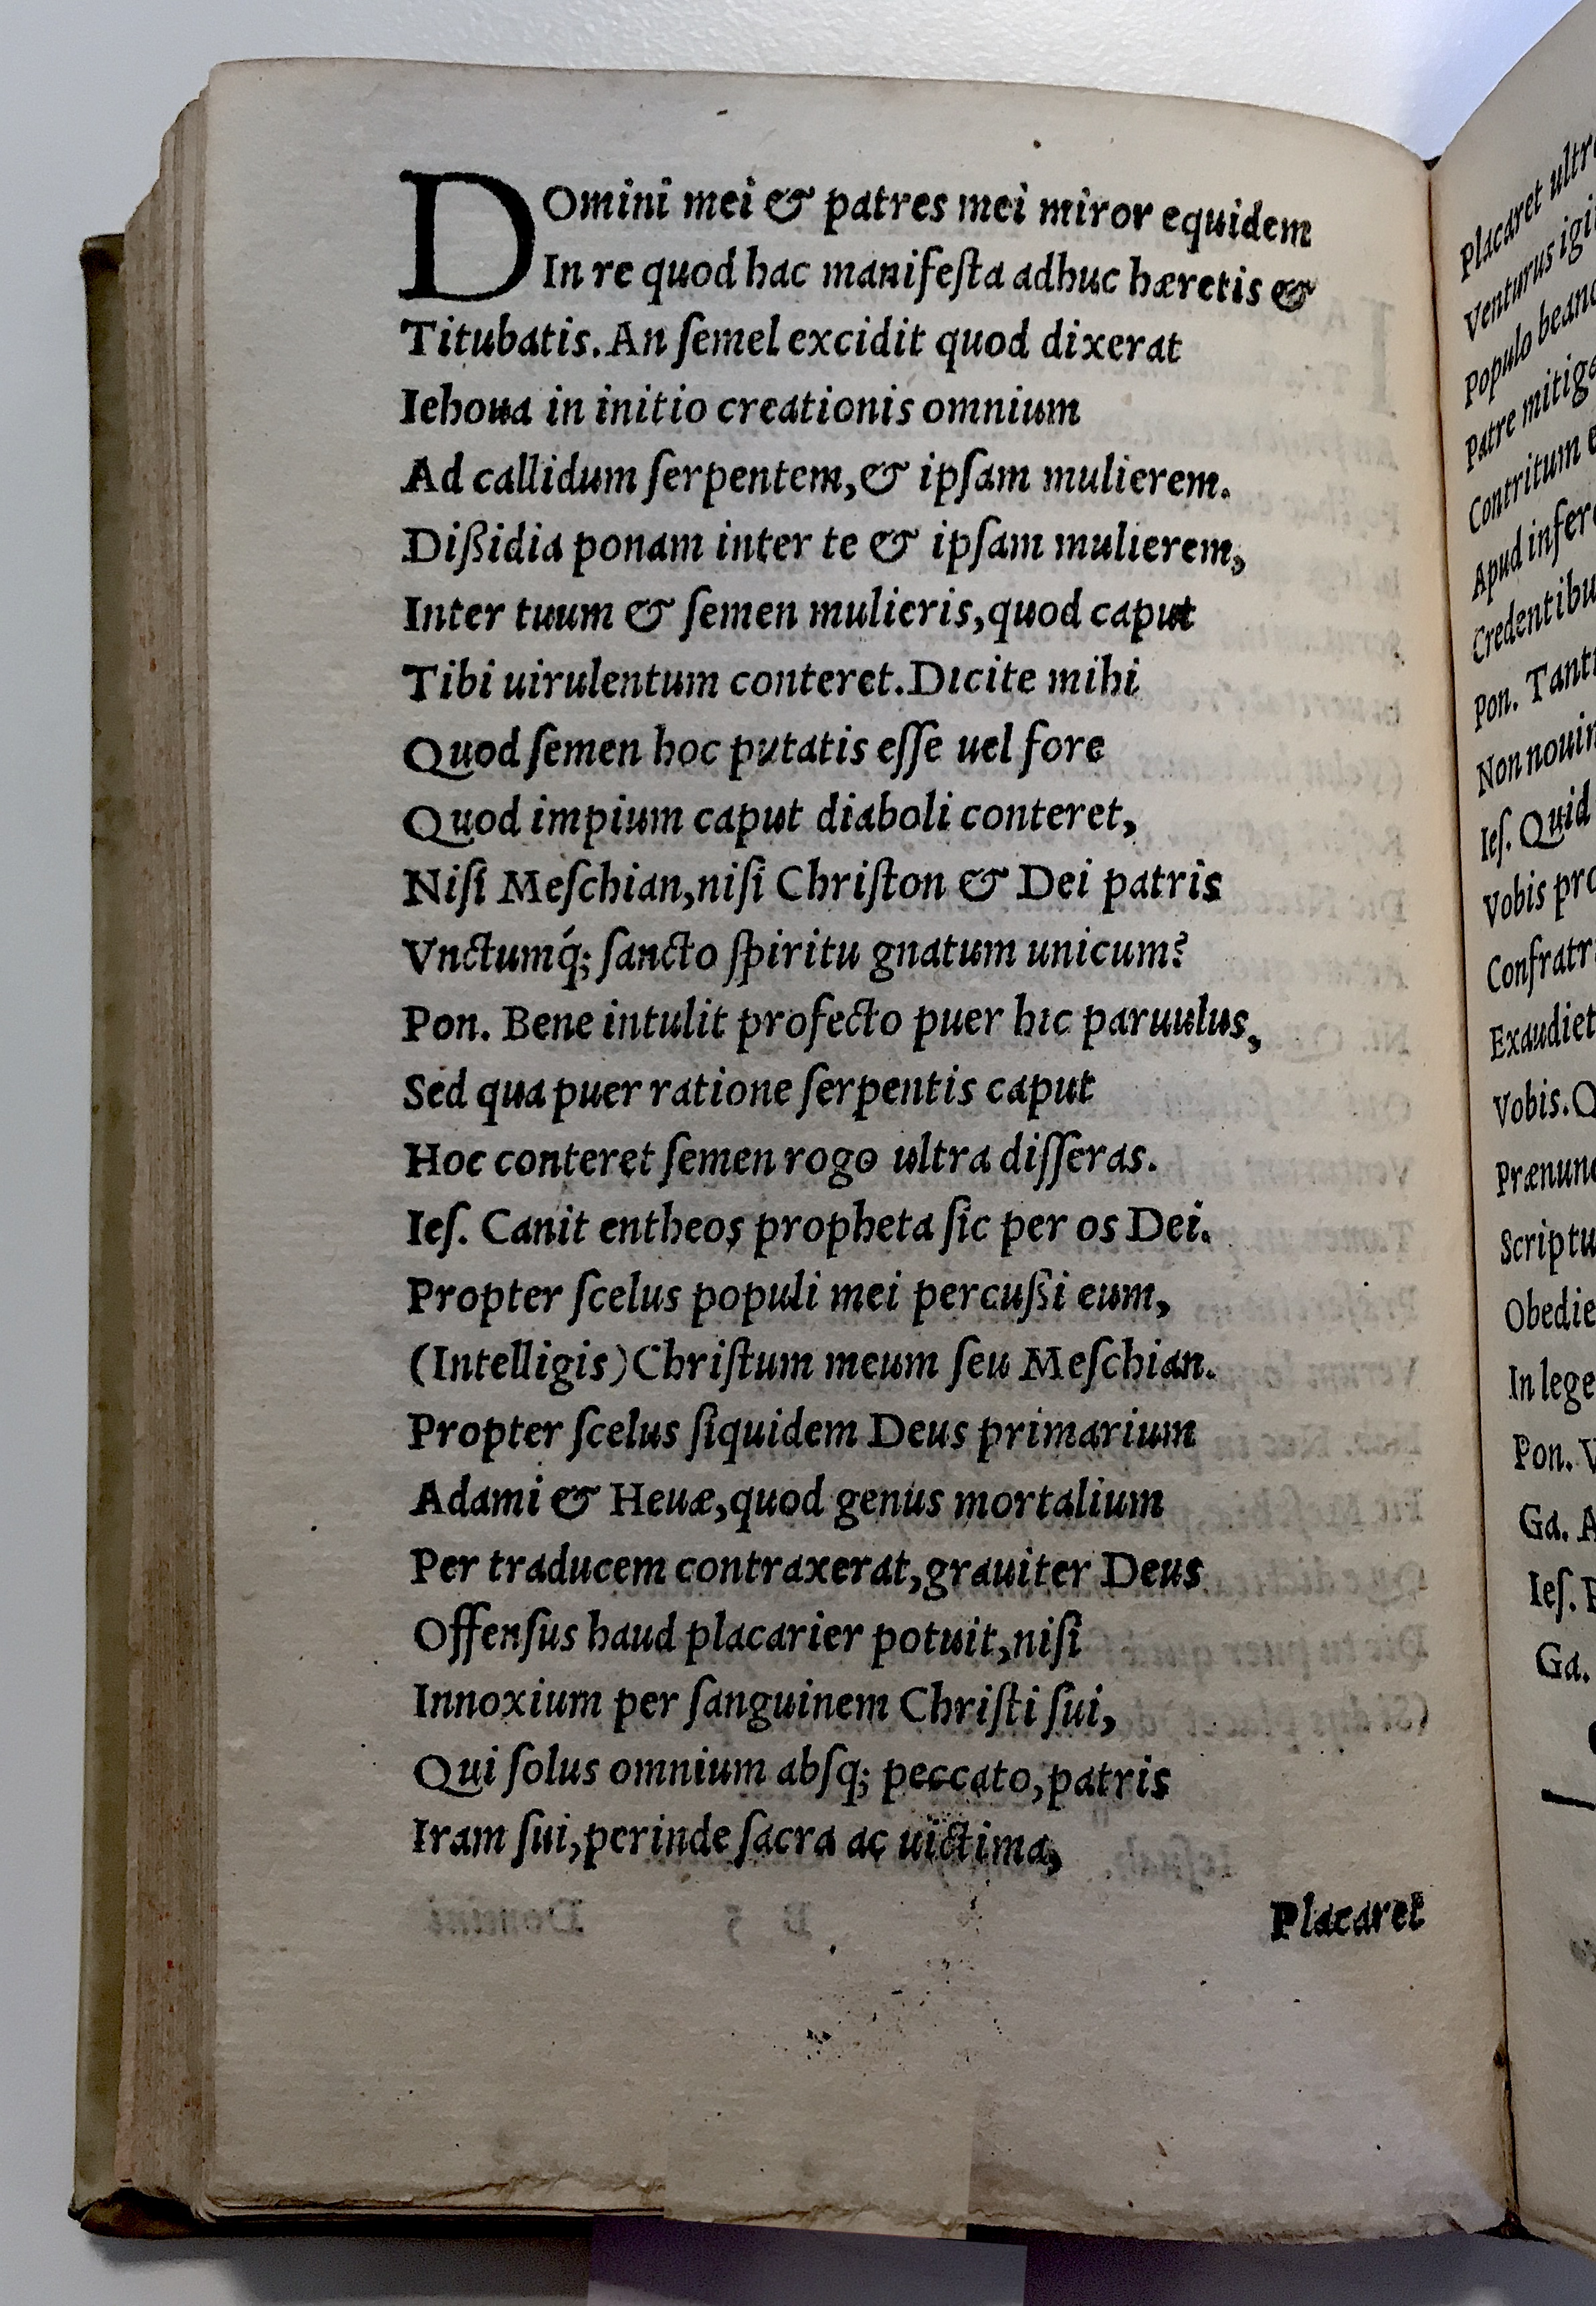 Domini mei & patres mei miror equidem
In re quod hac manifeſta adhuc hæretis &
Titubatis. An ſemel excidit quod dixerat
Iehoua in initio creationis omnium
Ad callidum ſerpentem, & ipſam mulierem.
Dißidia ponam inter te & ipſam mulierem,
Inter tuum & ſemen mulieris, quod caput
Tibi uirulentum conteret. Dicite mihi
Quod ſemen hoc putatis eſſe uel fore
Quod impium caput diaboli conteret,
Niſi Meſchian, niſi Chriſton & Dei patris
Vnctumq́; ſancto ſpiritu gnatum unicum?
Pon. Bene intulit profecto puer hic paruulus,
Sed qua puer ratione ſerpentis caput
Hoc conteret ſemen rogo ultra diſſeras.
Ieſ. Canit entheos propheta ſic per os Dei.
Propter ſcelus populi mei percußi eum,
(Intelligis) Chriſtum meum ſeu Meſchian.
Propter ſcelus ſiquidem Deus primarium
Adami & Heuæ, quod genus mortalium
Per traducem contraxerat, grauiter Deus
Offenſus haud placarier potuit, niſi
Innoxium per ſanguinem Chriſti ſui,
Qui ſolus omnium abſq; peccato, patris
Iram ſui, perinde ſacra ac uictima,
Placaret
Placaret
Venturus
Populo
Patre
Contritum
Apud
Pon.
Non
Ieſ. Quid
Vobis
Exaudiet
Vobis.
In lege
Pon.
Ga.
Ieſ.
Ga.